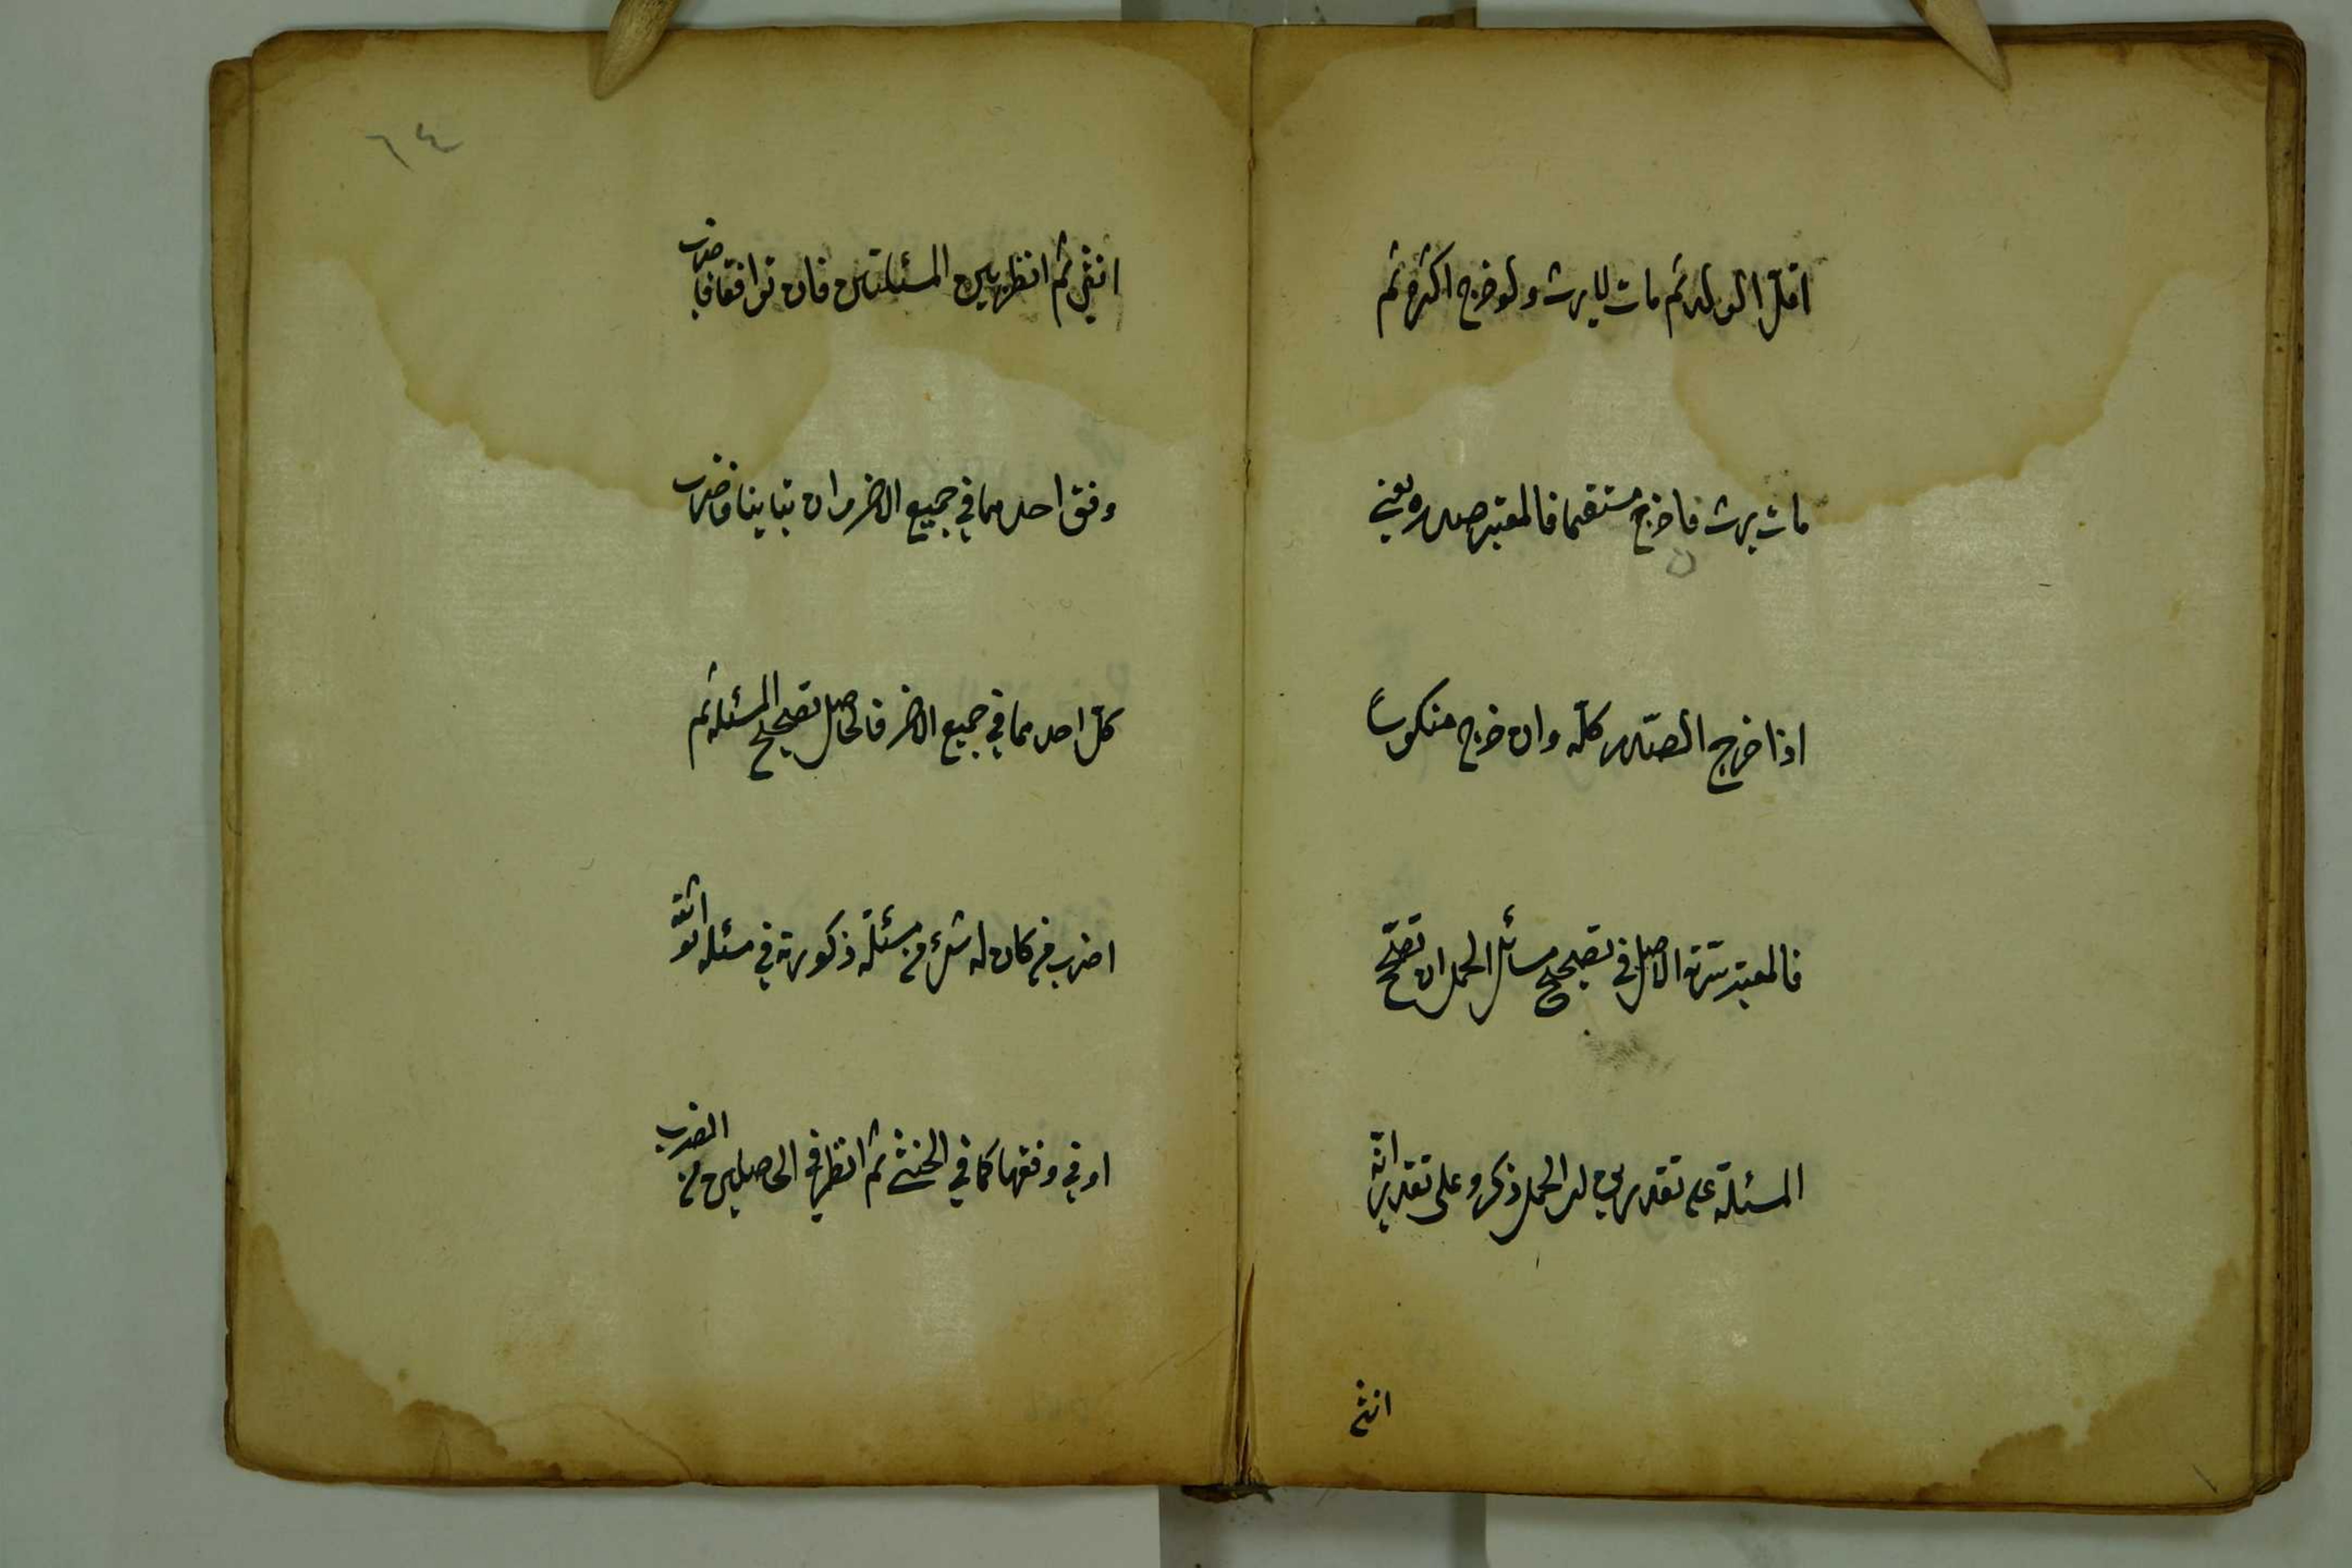 اقلّ الولد ثم مات لا يرث ولو خرج اكثره ثم
مات يرث فا خرج مستقيما فالمعتبر صدره يعني
اذا خرج الصّدر كلّه وان خرج منكوساً
فالمعتبر سرته الاصل في تصحيح مسائل الحمل ان تصحّح
المسئلة على تقديرين لد الحمل ذكر وعلى تقدير انّه
انثى
٦٤
انثى ثم انظر بين المسئلتين فان توافقا فاضرب
وفق احدهما في جميع الاخر وان تباينا فاضرب
كلّ احدهما في جميع الاخر فالحاصل تصحيح المسئلة ثم
اضرب من كان له شئ من مسئلة ذكورته في مسئلة انوثته
او في وفقها كما في الخنثى ثم انظر في الحاصلين من الضرب